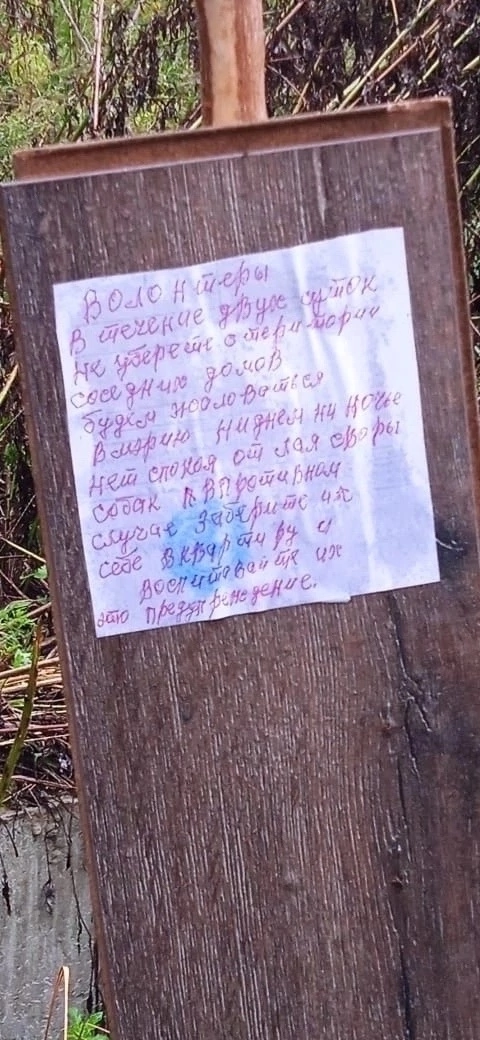 Волонтеры
В течение двух суток
не уберете с територии
соседних домов
будем жаловаться
Вмэрию Ниднем ни ночье
нет спокоя от лая своры
собак КВПротивном
случае Заберите их
себе Вквартиру и
Воспитовайте их
это предупреждение.